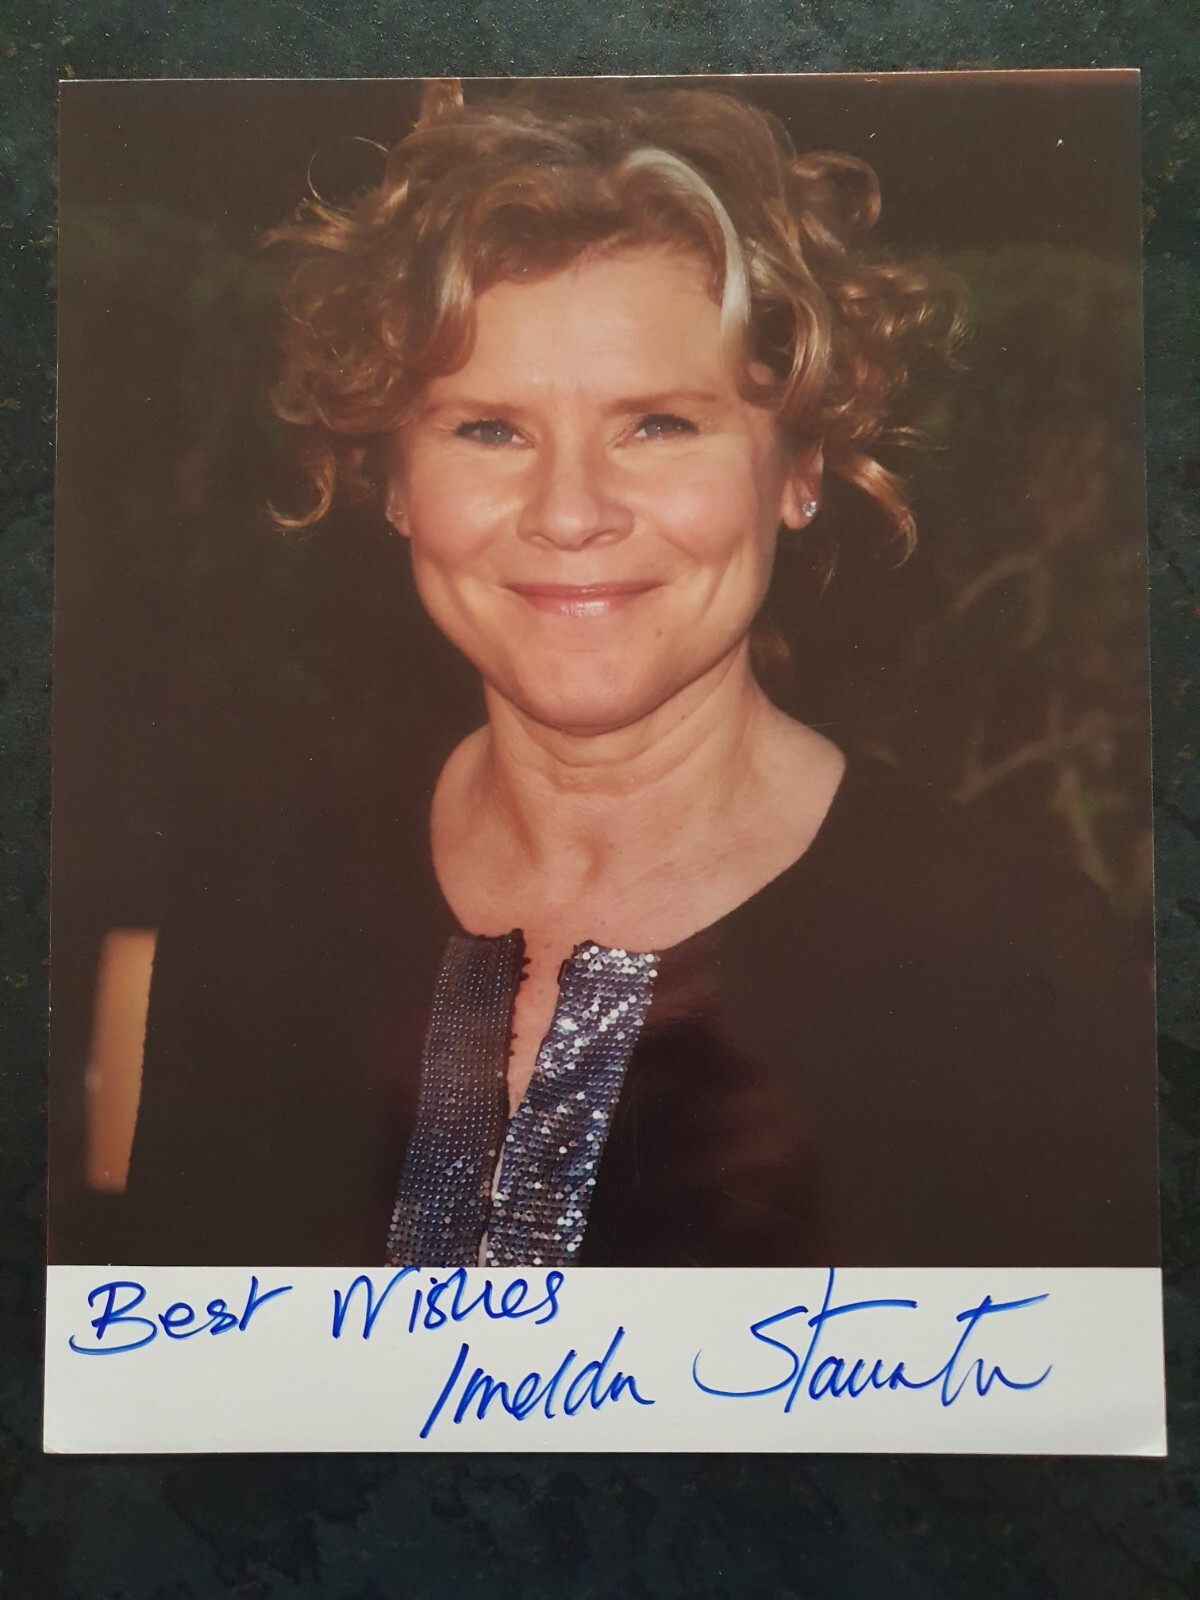 Best Wishes
Imelda Staunton